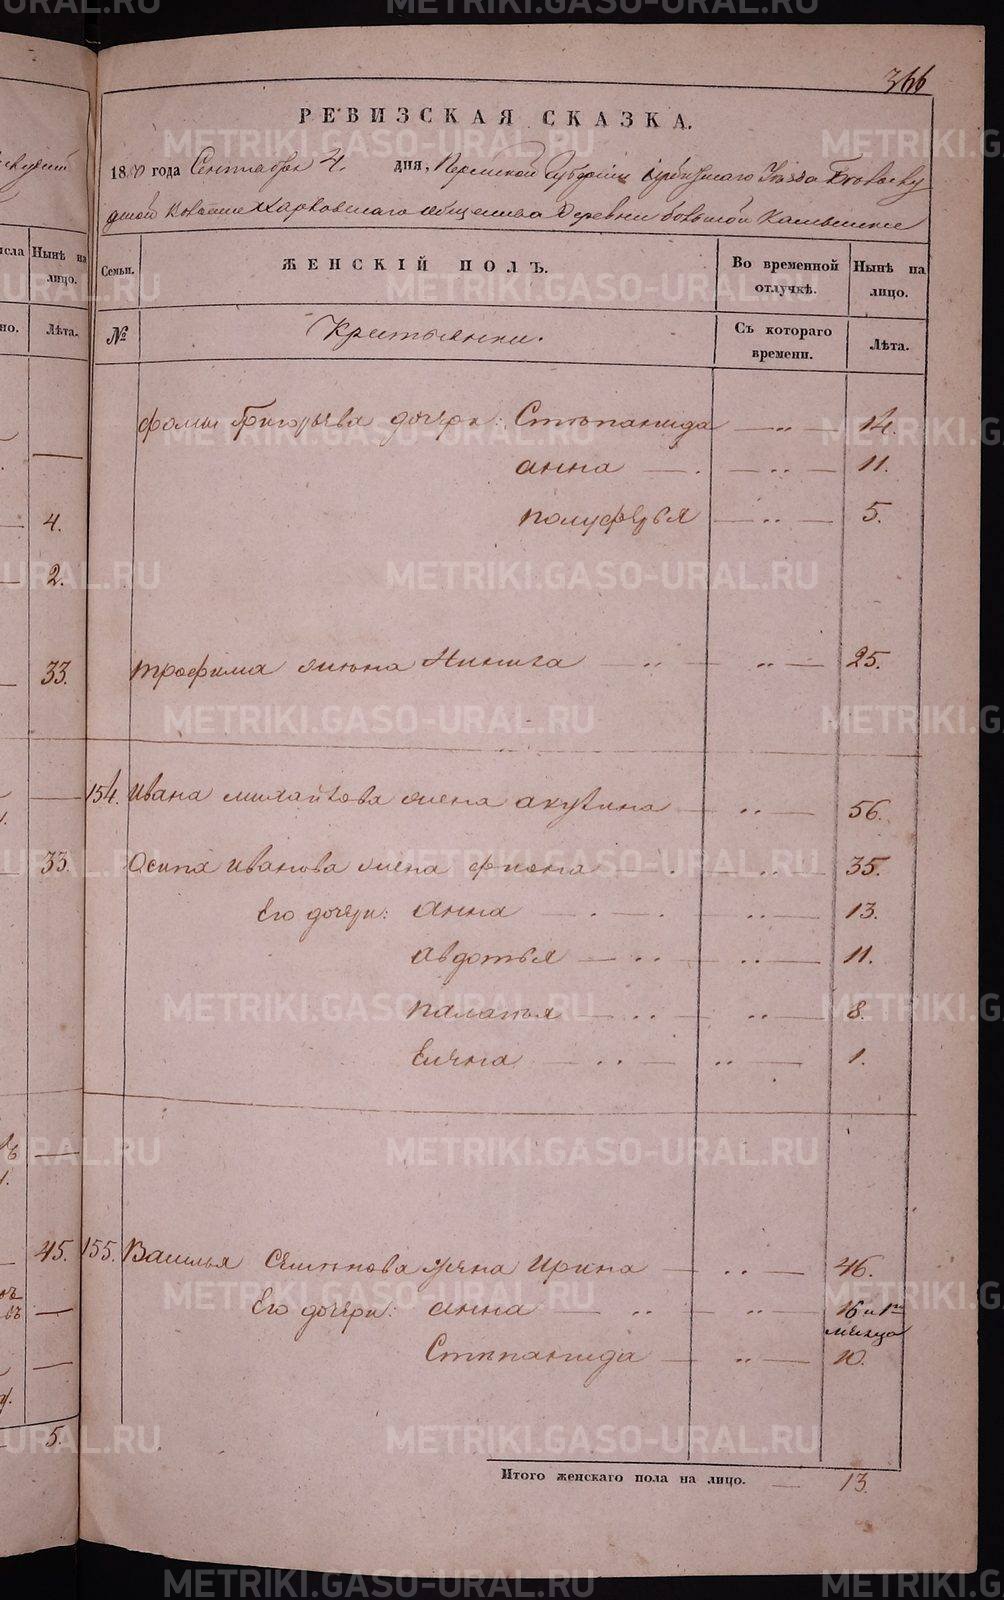 366
РЕВИЗСКАЯ СКАЗКА.
18 года Сентября 4. дня, Пермской Губернии Ирбитскаго Уезда
Харловскаго общества Деревни большой Камышенки
исла
Нынѣ на лицо.
Семьи.
ЖЕНСКІЙ ПОЛЪ.
Во временной отлучкѣ.
Нынѣ на лицо.
но.
Лѣта.
№
Крестьянки.
Съ котораго времени.
Лѣта.
Фомы Григорьева дочери: Степанида — „ — 14.
анна — . — „ — 11.
полуферья — „ — 5.
4.
2.
33.
трофима жена Ненила — „ — „ — 25.
154. Ивана михайлова жена акулина — „ — 56.
33.
Осипа Иванова жена фиона — „ — 35.
Его дочери: анна — . — . „ — 13.
авдотья — „ „ — 11.
палагья — „ „ — 8.
Елена — „ — „ — 1.
45.
155. Василья Семенова жена Ирина — „ — 46.
Его дочери: анна — „ „ — 16 и 1
месяца
Степанида — „ — 10.
5.
Итого женскаго пола на лицо. — 13.
METRIKI.GASO-URAL.RU